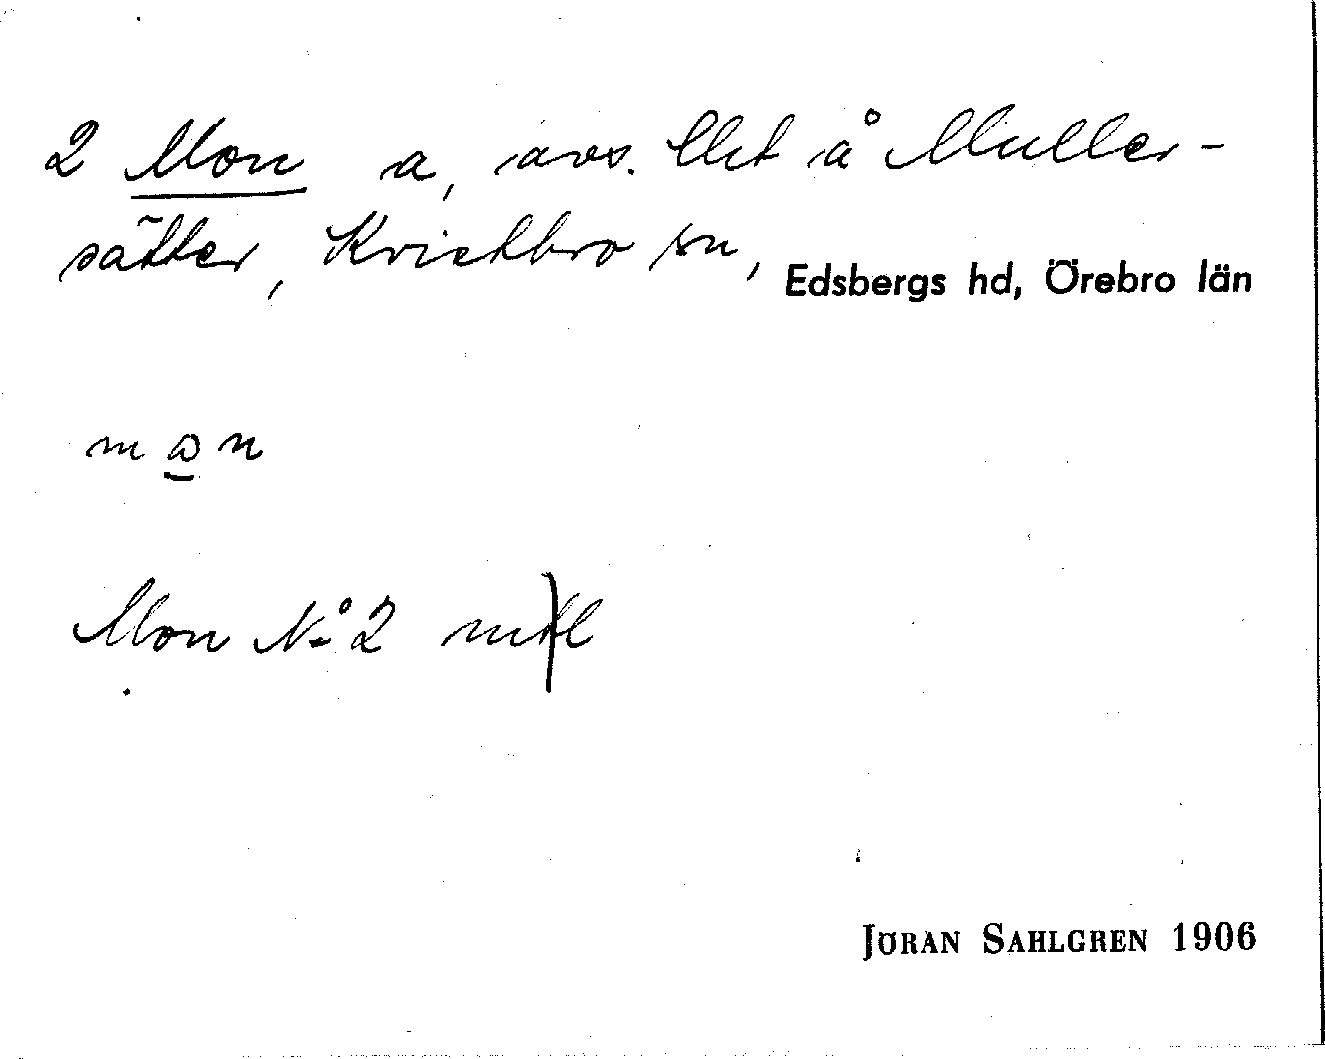 2 Mon a, avs. lht å Muller-
sätter, Kvistbro sn, Edsbergs hd, Örebro län
m o n
Mon No 2
JÖRAN SAHLGREN 1906